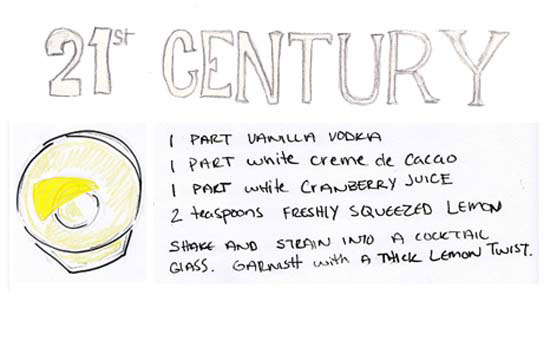 21st CENTURY
1 PART VANILLA VODKA
1 PART white creme de cacao
1 PART white CRANBERRY JUICE
2 teaspoons FRESHLY SQUEEZED LEMON
SHAKE AND STRAIN INTO A COCKTAIL
GLASS. GARNISH with A THICK LEMON TWIST.